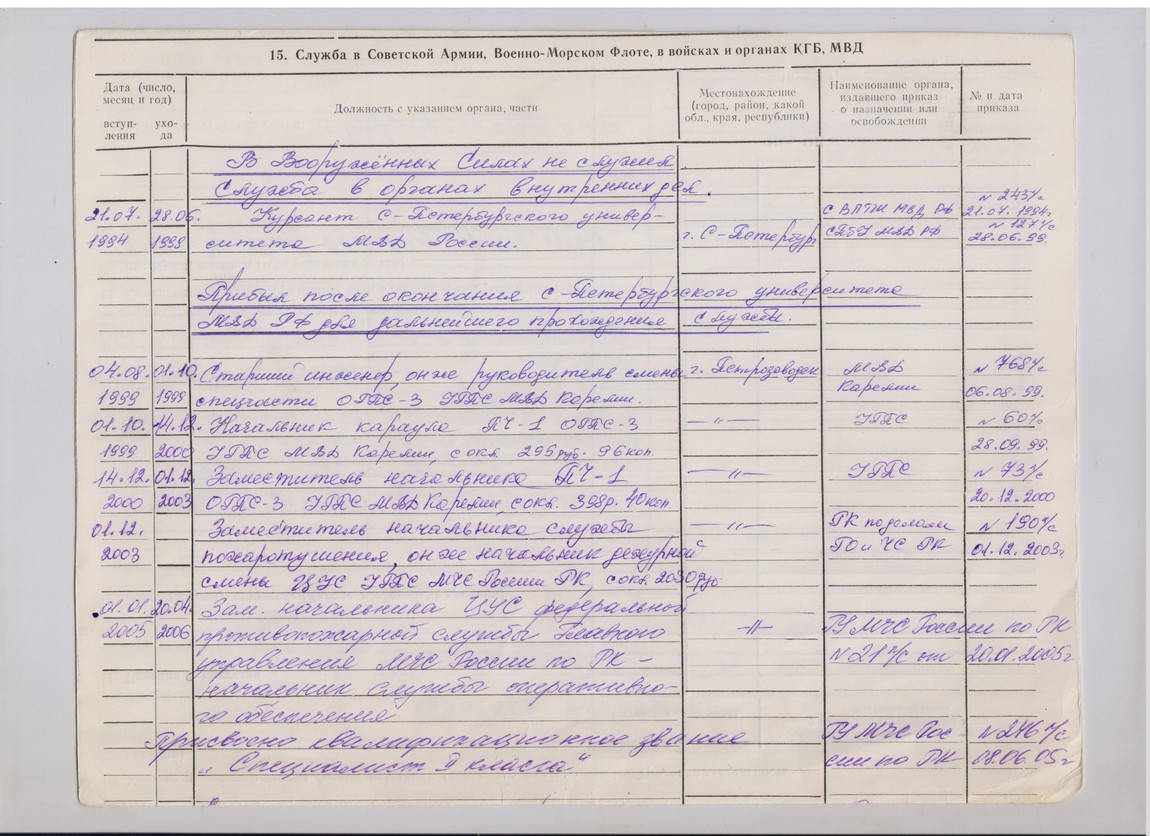 15. Служба в Советской Армии, Военно-Морском Флоте, в войсках и органах КГБ, МВД
Дата (число, месяц и год)
вступ-ления
ухо-да
Должность с указанием органа, части
Местонахождение (город, район, какой обл., края, республики)
Наименование органа, издавшего приказ о назначении или освобождении
№ и дата приказа
В Вооружённых Силах не служил
Служба в органах внутренних дел.
N 243 л/с
21.07. 28.06. Курсант С-Петербургского универ- С ВПТШ МВД РФ 21.07.1994г
N 127 л/с
1994 1999 ситета МВД России. г. С-Петербург СПбУ МВД РФ 28.06.99.
Прибыл после окончания С-Петербургского университета
МВД РФ для дальнейшего прохождения службы.
04.08. 01.10. Старший инженер, он же руководитель смены г. Петрозаводск МВД N 768 л/с
1999 1999 спецчасти ОГПС-3 УГПС МВД Карелии. Карелии 06.08.99.
01.10. 14.12. Начальник караула ПЧ-1 ОГПС-3 —〃— УГПС N 60 л/с
1999 2000 УГПС МВД Карелии, с окл. 295 руб. 96 коп. 28.09.99.
14.12. 01.12. Заместитель начальника ПЧ-1 —〃— УГПС N 73 л/с
2000 2003 ОГПС-3 УГПС МВД Карелии, с окл. 398р. 40 коп. 20.12.2000
01.12. Заместитель начальника службы —〃— ГК по делам N 190 л/с
2003 пожаротушения, он же начальник дежурной ГО и ЧС РК 01.12.2003г
смены ЦУС УГПС МЧС России РК, с окл. 2030 руб
01.01. 20.04. Зам. начальника ЦУС федеральной
2005 2006 противопожарной службы Главного —〃— ГУ МЧС России по РК
управления МЧС России по РК – N 21 л/с от 20.01.2005г
начальник службы оперативно-
го обеспечения
Присвоено квалификационное звание ГУ МЧС Рос N 246 л/с
„Специалист II класса“ сии по РК 08.06.05г